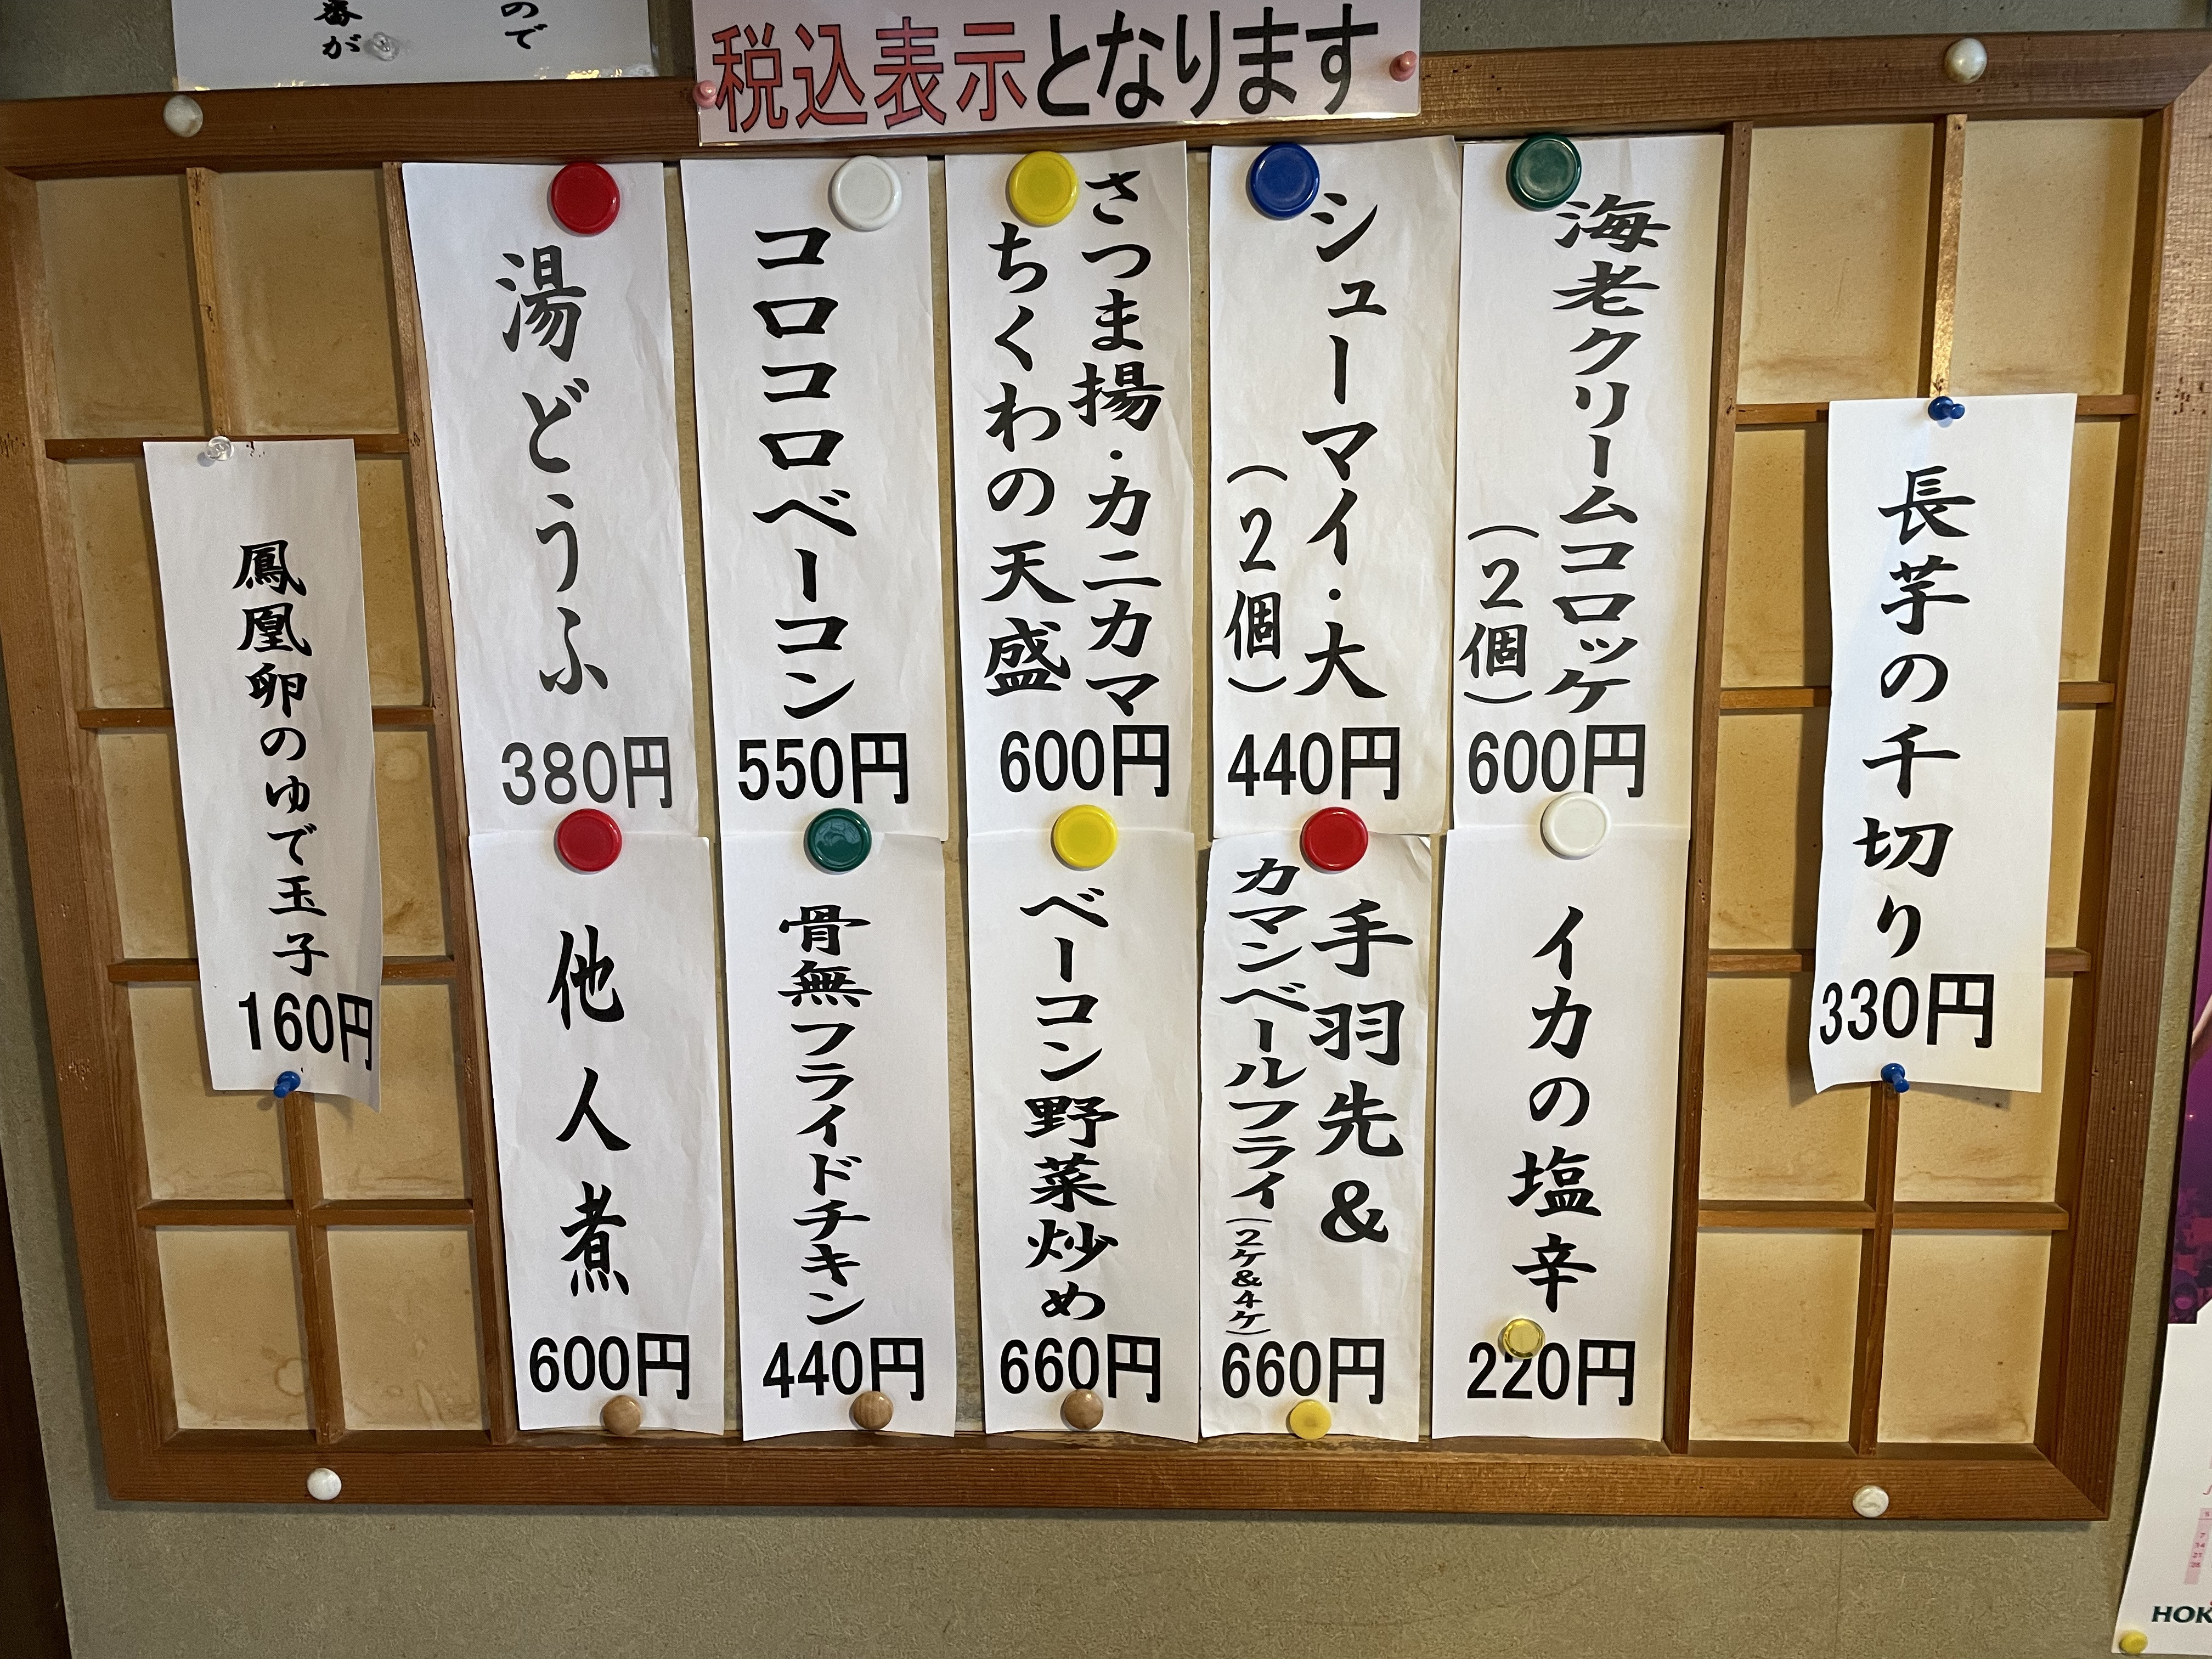 ので
番が
税込表示となります
長芋の千切り
330円
海老クリームコロッケ
(2個)
600円
シューマイ・大
(2個)
440円
さつま揚・カニカマ
ちくわの天盛
600円
コロコロベーコン
550円
湯どうふ
380円
イカの塩辛
220円
手羽先&
カマンベールフライ(2ケ&4ケ)
660円
ベーコン野菜炒め
660円
骨無フライドチキン
440円
他人煮
600円
鳳凰卵のゆで玉子
160円
HOK